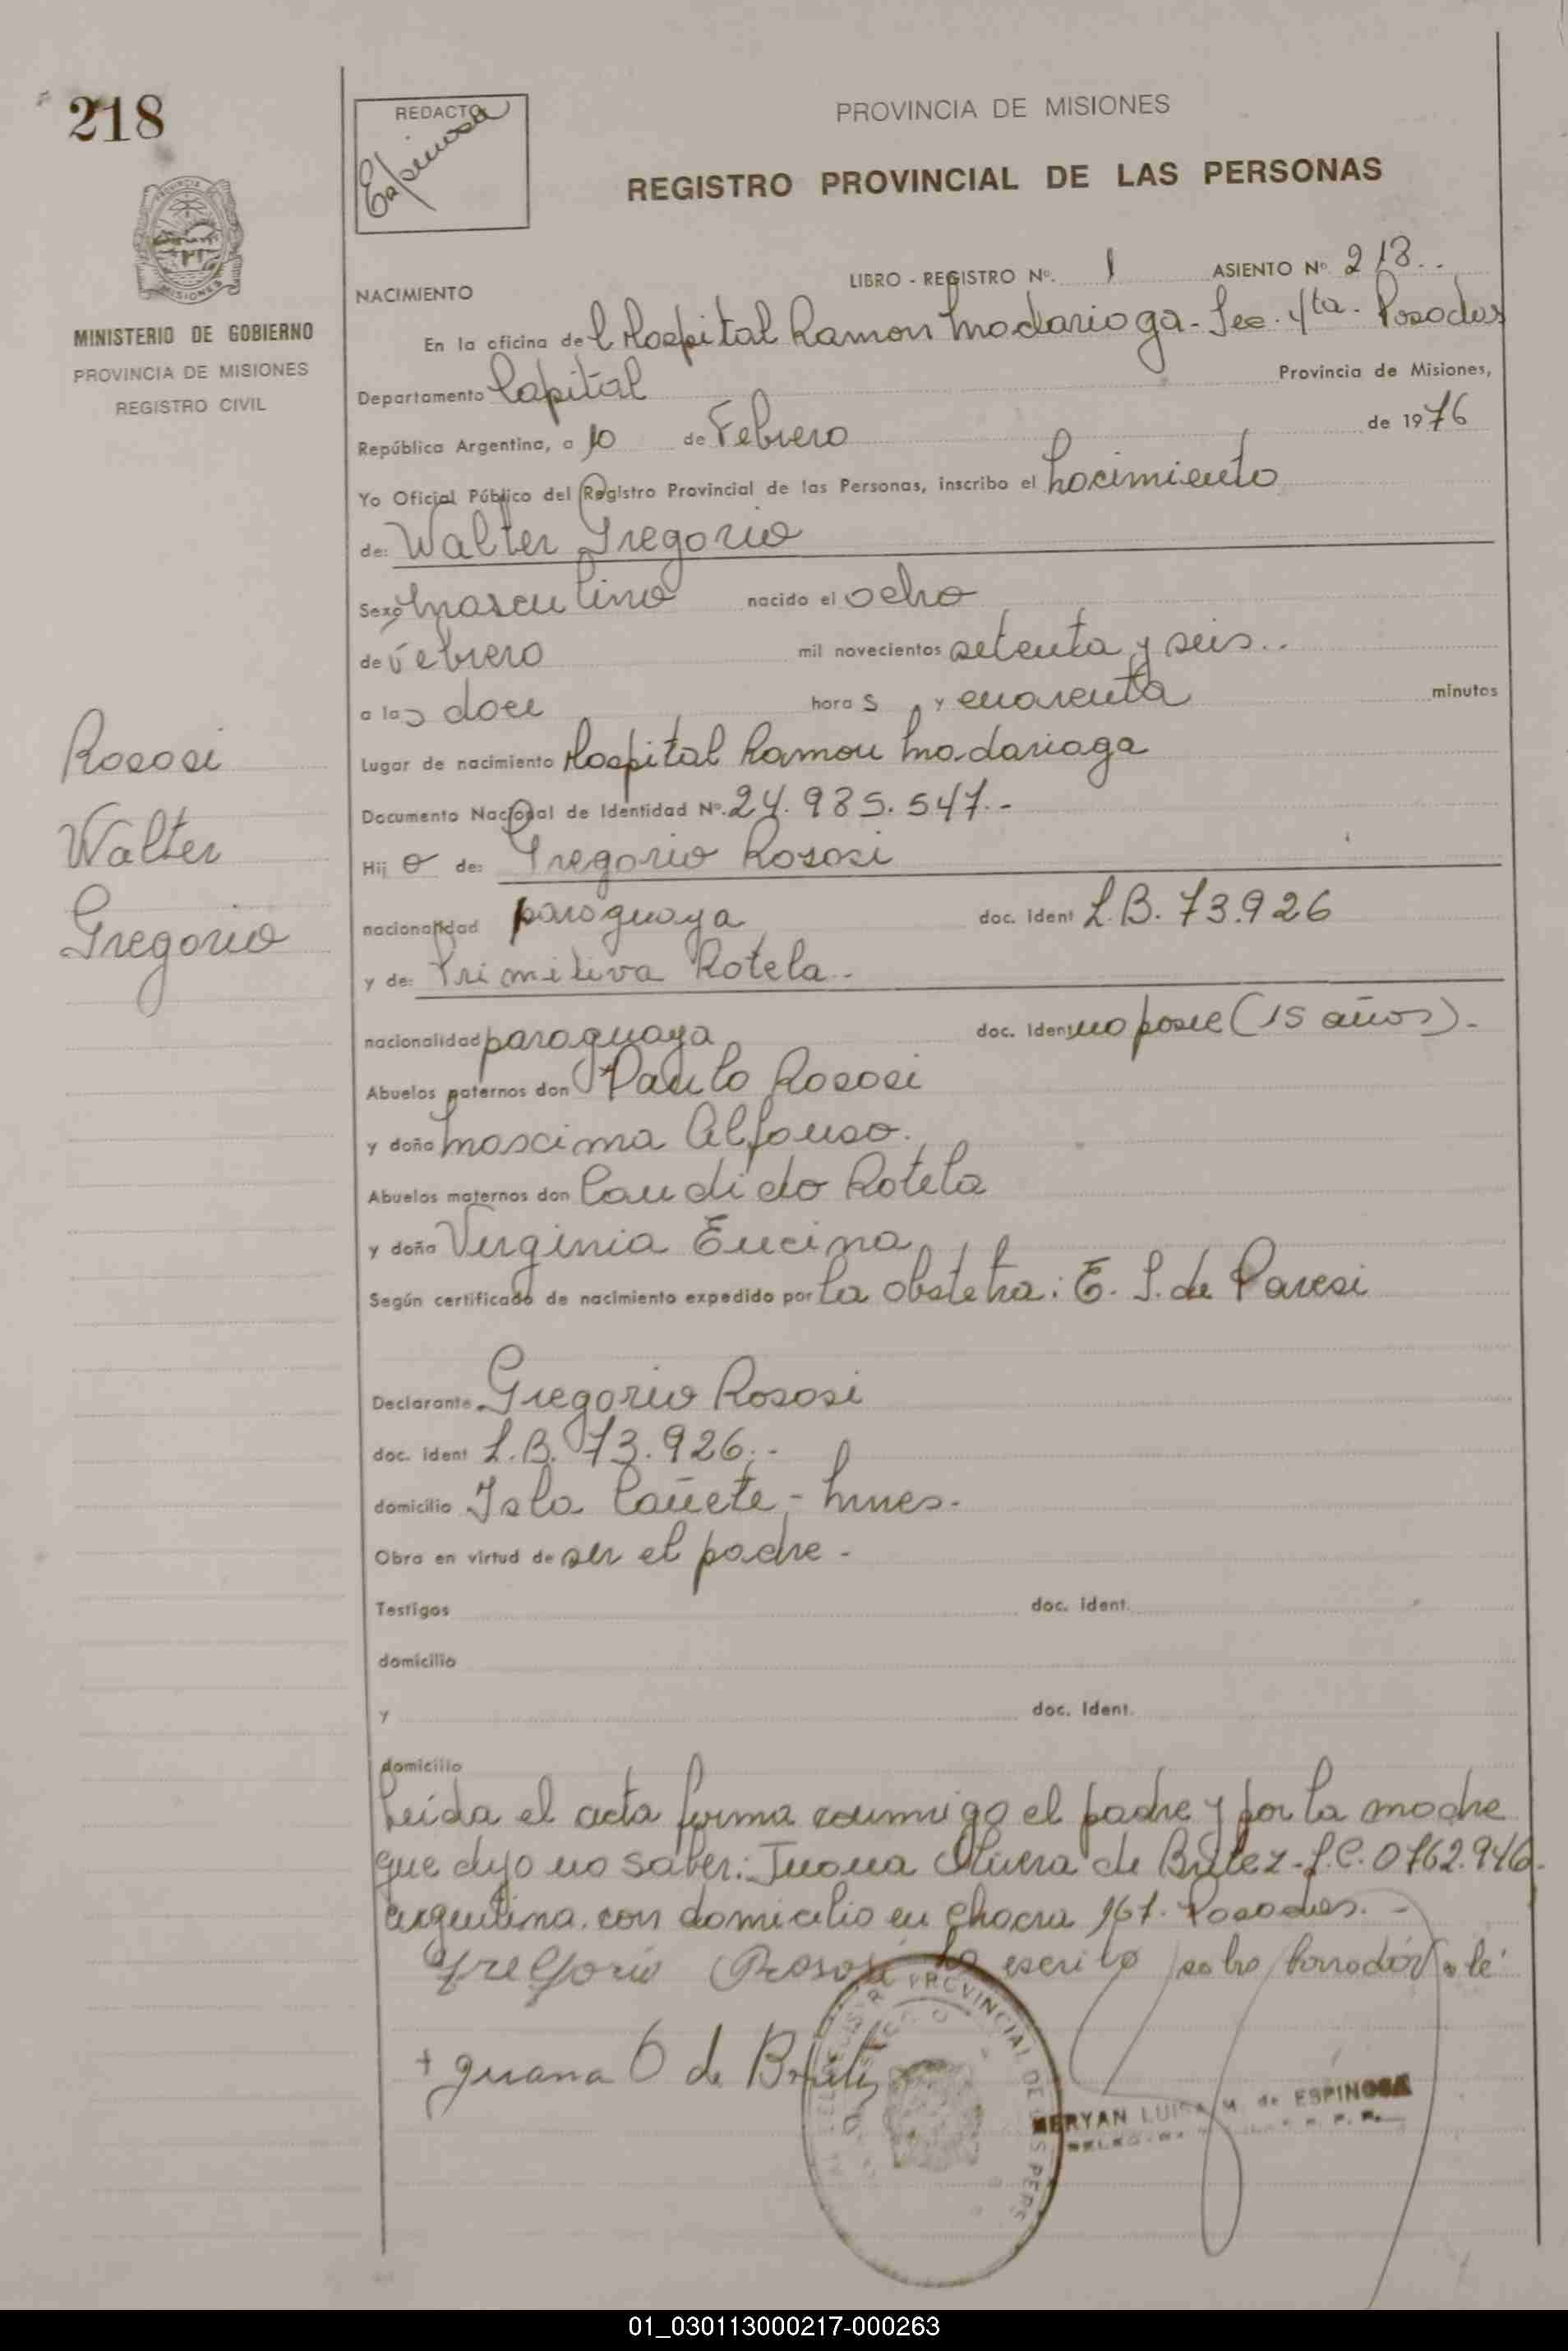 218
REDACTO
Espinosa
PROVINCIA DE MISIONES
REGISTRO PROVINCIAL DE LAS PERSONAS
MINISTERIO DE GOBIERNO
PROVINCIA DE MISIONES
REGISTRO CIVIL
LIBRO - REGISTRO Nº. 1 ASIENTO Nº. 218..
NACIMIENTO
En la oficina del Hospital Ramon Madariaga - Sec. 4ta. Posadas
Departamento Capital Provincia de Misiones,
República Argentina, a 10 de Febrero de 1976
Yo Oficial Público del Registro Provincial de las Personas, inscribo el Nacimiento
de: Walter Gregorio
Sexo Masculino nacido el ocho
de Febrero mil novecientos setenta y seis..
a las doce horas y cuarenta minutos
Lugar de nacimiento Hospital Ramon Madariaga
Documento Nacional de Identidad Nº. 24.985.547.-
Hijo de: Gregorio Rososi
nacionalidad paraguaya doc. ident L.B. 73.926
y de: Primitiva Rotela..
nacionalidad paraguaya doc. ident no posee (15 años).-
Abuelos paternos don Paulo Rososi
y doña Mascima Alfonso.
Abuelos maternos don Candido Rotela
y doña Virginia Encina
Según certificado de nacimiento expedido por la obstetra: E. S. de Paresi
Rososi
Walter
Gregorio
Declarante Gregorio Rososi
doc. ident L.B. 73.926.-
domicilio Isla Cañete - Mnes.
Obra en virtud de ser el padre -
Testigos doc. ident.
domicilio
y doc. ident.
domicilio
Leida el acta firma conmigo el padre y por la madre
que dijo no saber: Juana Olivera de Britez - L.C. 0762.946.
argentina, con domicilio en chacra 167. Posadas. -
Gregorio Rososi lo escrito sobre borrador vale
+ Juana O de Britez
REGISTRO PROVINCIAL DE LAS PERS
MERYAN LUISA M. de ESPINOSA
01_030113000217-000263